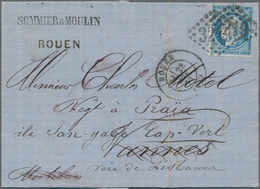 SOMMIER & MOULIN
ROUEN
ROUEN
Monsieur Charles Martel
Negt à Praïa
île San-yago Cap-Vert
Vannes
Voie de Lisbonne